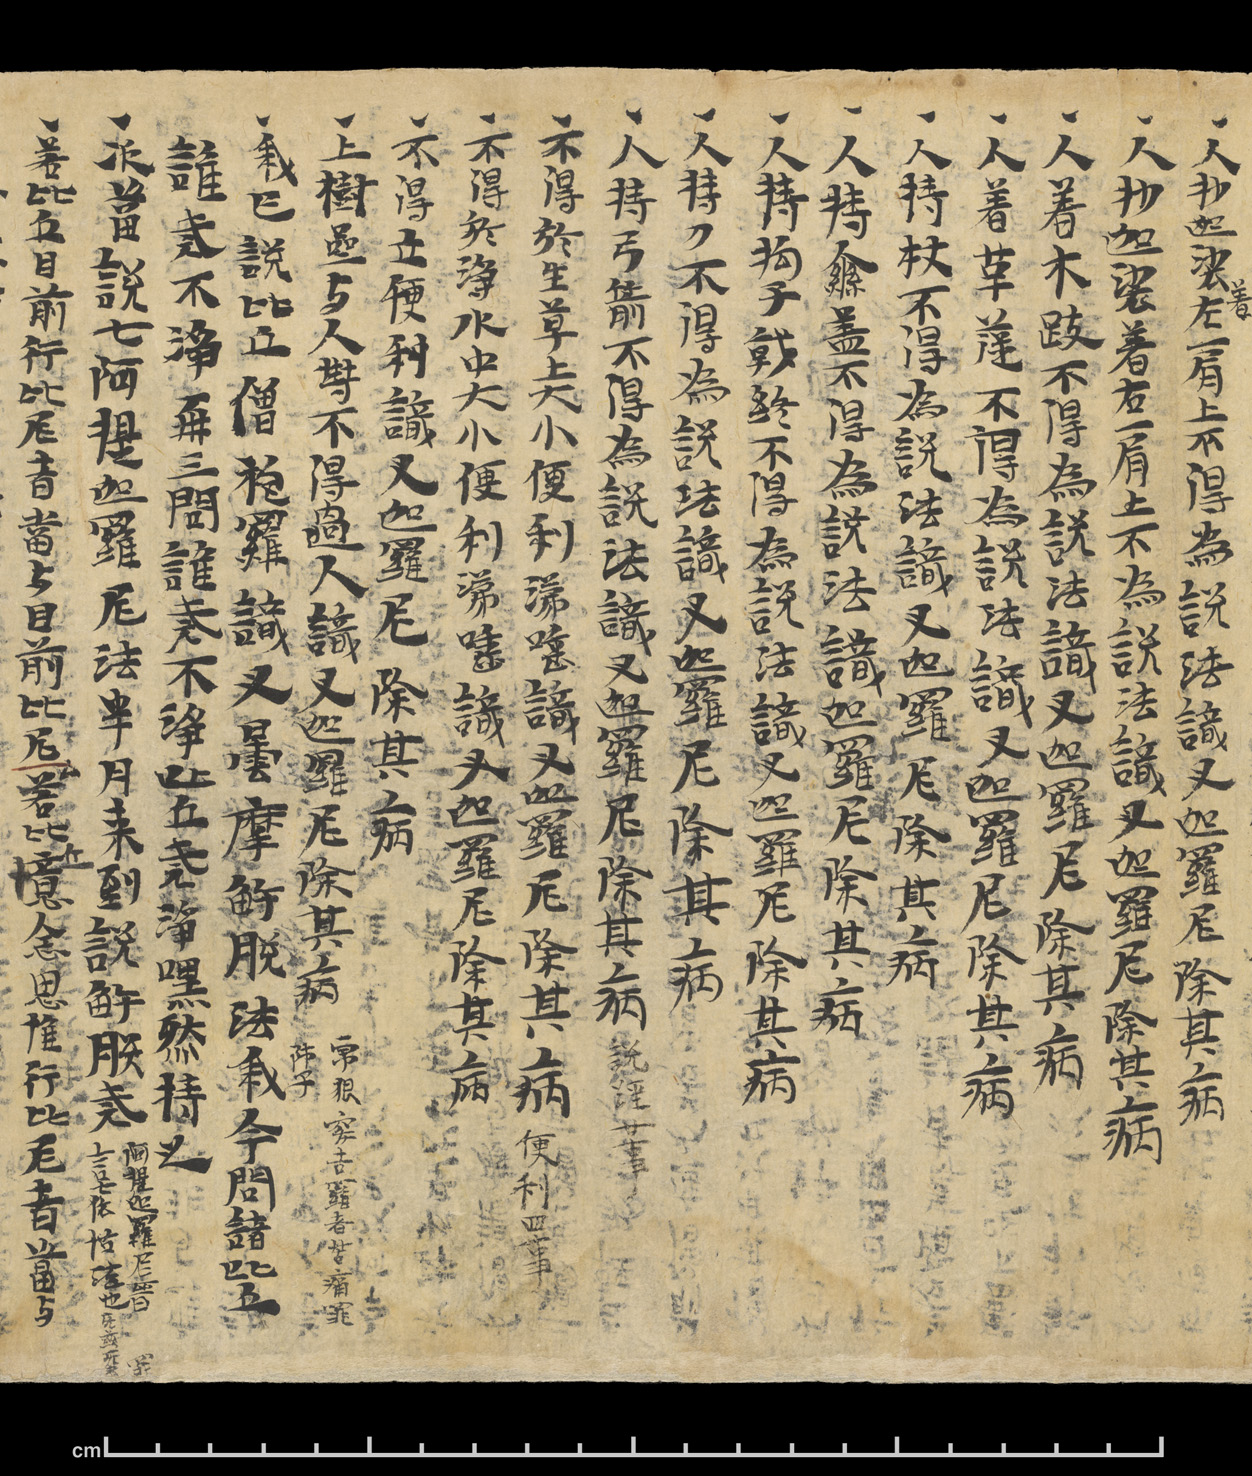 人抄迦裟著左一肩上不得為說法識叉迦羅尼除其病
人抄迦裟著右一肩上不為說法識叉迦羅尼除其病
人著木跂不得為說法識叉迦羅尼除其病
人著草蓰不得為說法識叉迦羅尼除其病
人持杖不得為說法識叉迦羅尼除其病
人持繖盖不得為說法識迦羅尼除其病
人持拘子戟鉾不得為說法識叉迦羅尼除其病
人持刀不得為說法識叉迦羅尼除其病
人持弓箭不得為說法識叉迦羅尼除其病 說經廿事
不得於生草上大小便利涕唾識叉迦羅尼除其病 便利四事
不得於淨水中大小便利涕唾識叉迦羅尼除其病
不得立便利識叉迦羅尼除其病
上樹過与人對不得過人識叉迦羅尼除其病
我已說比丘僧袍羅識叉曇摩解脫法我今問諸比丘
誰着不淨再三問誰着不淨比丘着淨嘿然持之
次當說七阿提迦羅尼法半月来到說解脫着
若比丘目前行比尼者當与目前比尼若比丘憶念思惟行比尼者當与